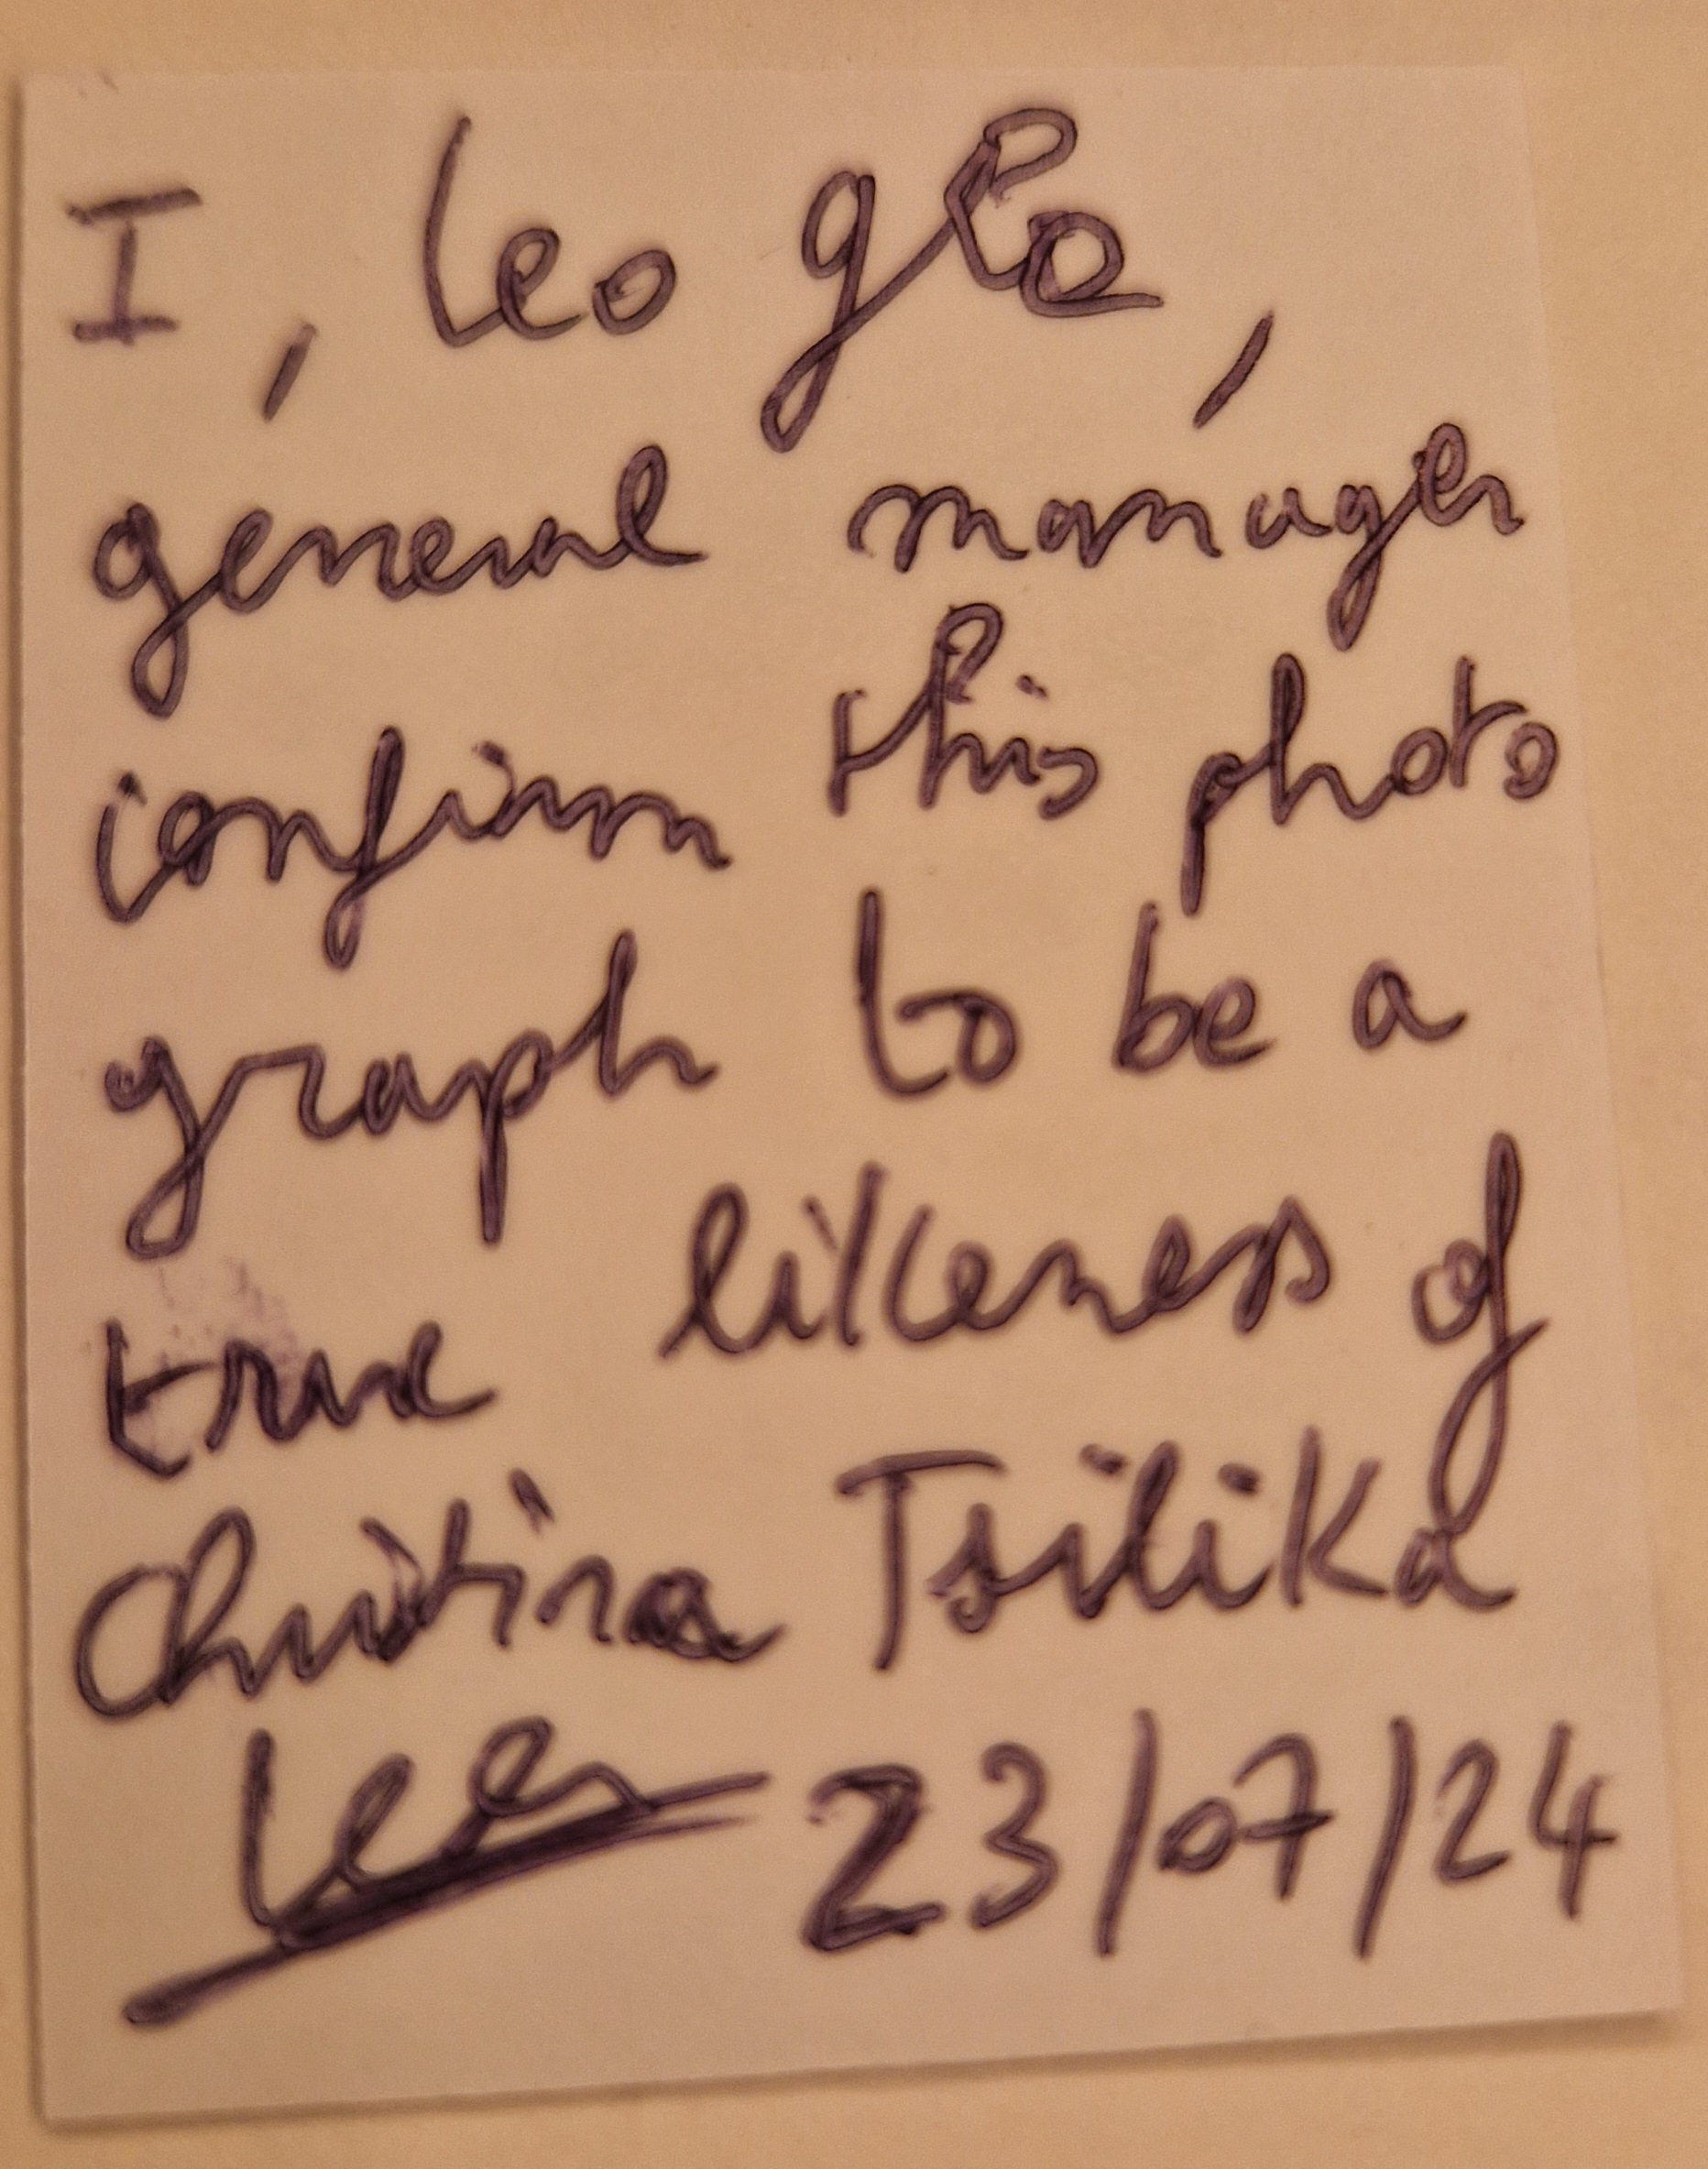 I, Leo glo,
general manager
confirm this photo
graph to be a
true likeness of
Christina Tsilika
Leo 23/07/24